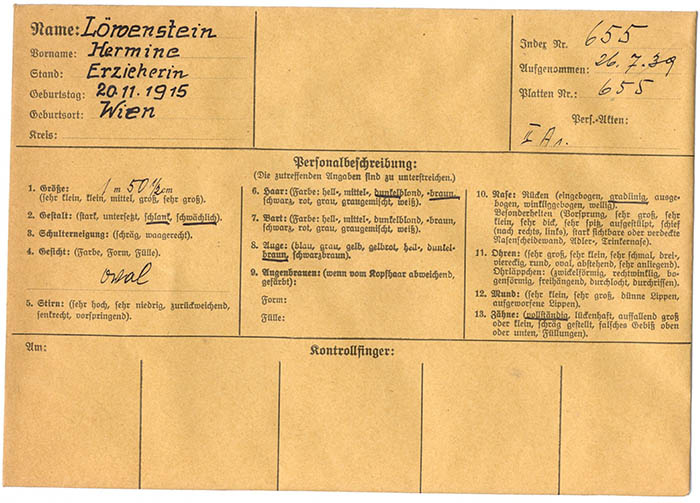 Name: Löwenstein
Vorname: Hermine
Stand: Erzieherin
Geburtstag: 20.11.1915
Geburtsort: Wien
Kreis:
Index Nr. 655
Aufgenommen: 26.7.39
Platten Nr.: 655
Pers.-Akten:
II
Personalbeschreibung:
(Die zutreffenden Angaben sind zu unterstreichen).
1. Größe: 1 m 50 1/2 cm
(sehr klein, klein, mittel, groß, sehr groß).
2. Gestalt: (stark, untersetzt, schlank, schwächlich).
3. Schulterneigung: (schräg, waagerecht).
4. Gesicht: (Farbe, Form, Fülle).
oval
5. Stirn: (sehr hoch, sehr niedrig, zurückweichend,
senkrecht, vorspringend).
6. Haar: (Farbe: hell-, mittel-, dunkelblond, -braun,
schwarz, rot, grau, graugemischt, weiß).
7. Bart: (Farbe: hell-, mittel-, dunkelblond, -braun,
schwarz, rot, grau, graugemischt, weiß).
8. Auge: (blau, grau, gelb, gelbrot, hell-, dunkel-
braun, schwarzbraun).
9. Augenbrauen: (wenn vom Kopfhaar abweichend,
gefärbt):
Form:
Fülle:
10. Nase: Rücken (eingebogen, gradlinig, ausge-
bogen, winkliggebogen, wellig).
Besonderheiten (Vorsprung, sehr groß, sehr
klein, sehr dick, sehr spitz, aufgestülpt, schief
(nach rechts, links), stark sichtbare oder verdeckte
Nasenscheidewand, Adler-, Trinkernase).
11. Ohren: (sehr groß, sehr klein, sehr schmal, drei-,
viereckig, rund, oval, abstehend, sehr anliegend).
Ohrläppchen: (zwickelförmig, rechtwinklig, bo-
genförmig, freihängend, durchlocht, durchrissen).
12. Mund: (sehr klein, sehr groß, dünne Lippen,
aufgeworfene Lippen).
13. Zähne: (vollständig, lückenhaft, auffallend groß
oder klein, schräg gestellt, falsches Gebiß oben
oder unten, Füllungen).
Am:
Kontrollfinger: